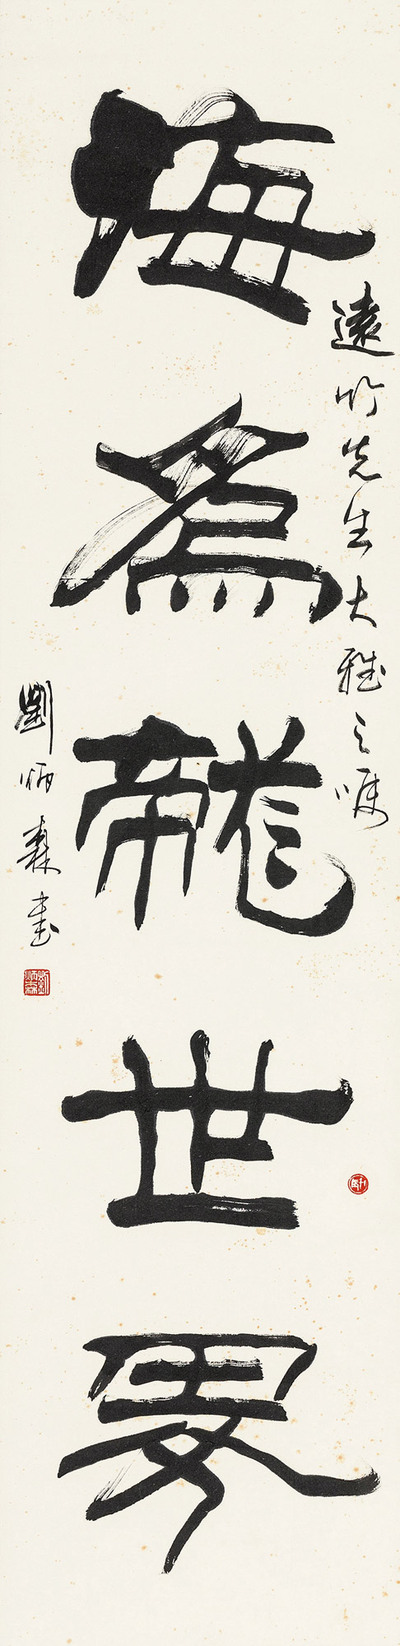 遠竹先生大雅之嘱
海為龍世界
劉炳森書